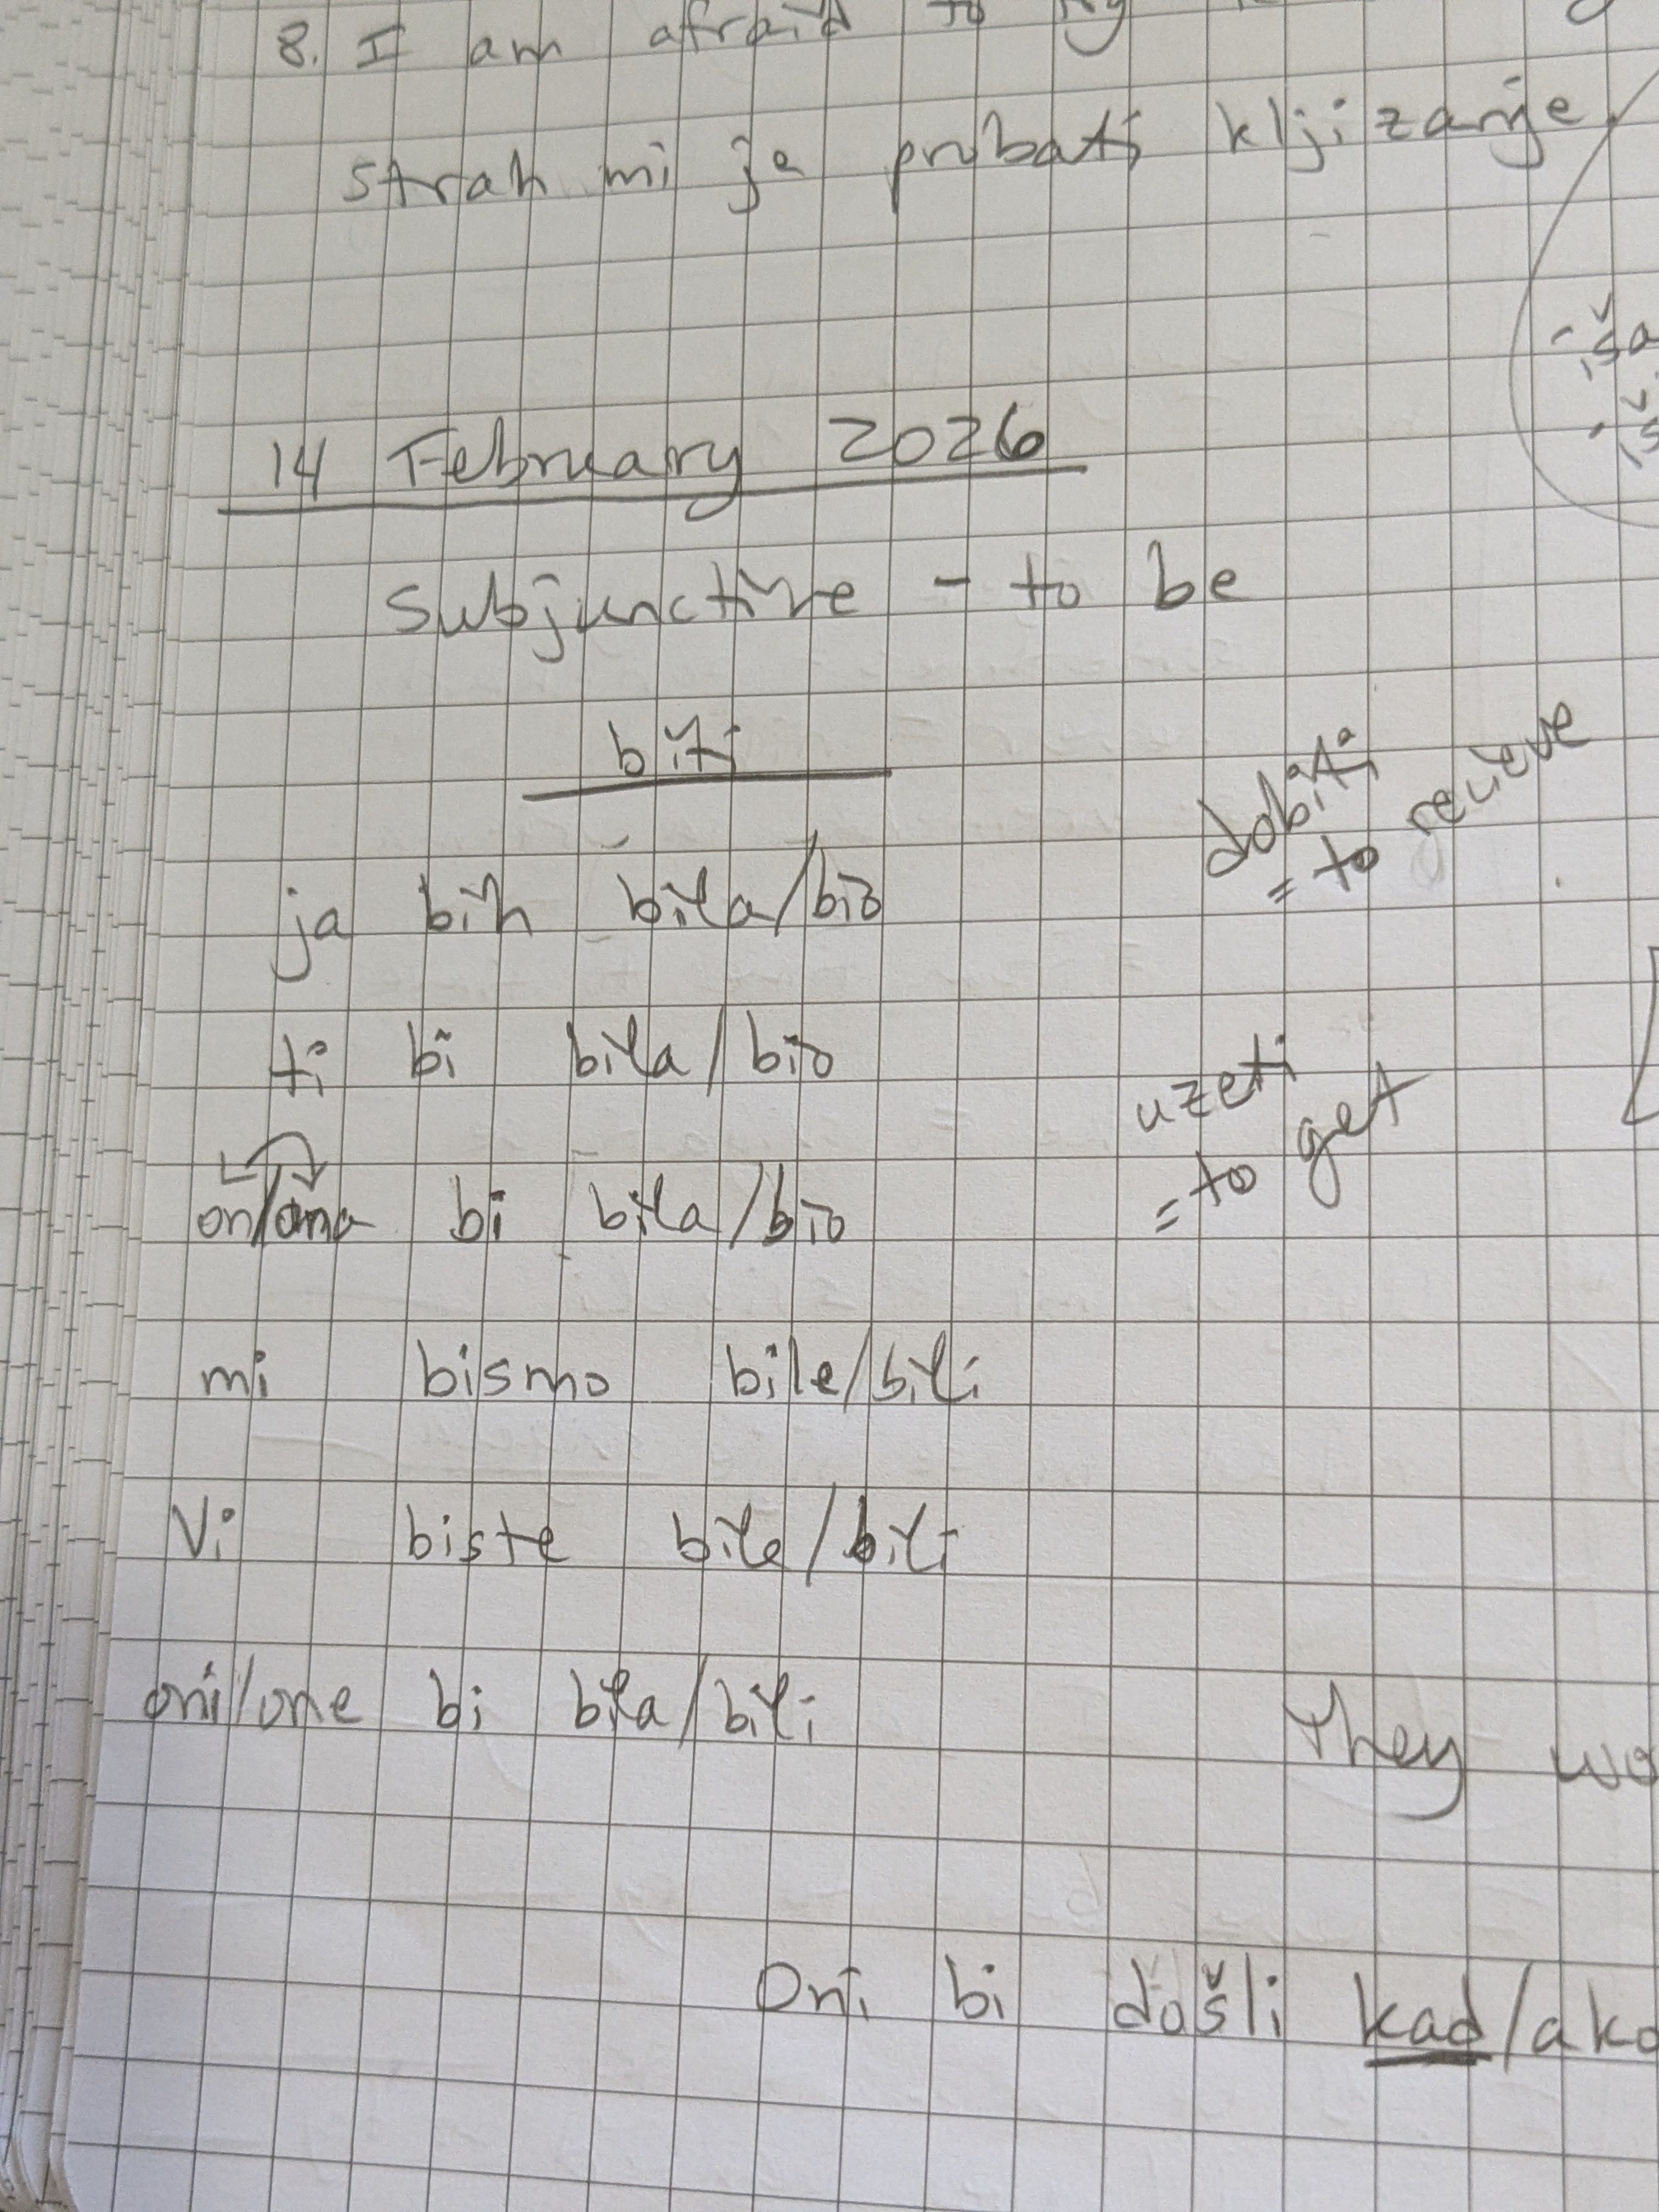 8. I am afraid to try
strah mi je probati kljizanje
14 February 2026
Subjunctive - to be
biti
dobiti
= to recieve
ja bih bila/bio
ti bi bila/bio
uzeti
= to get
on/ona bi bila/bio
mi bismo bile/bili
Vi biste bile/bili
oni/one bi bila/bili
They
Oni bi došli kad/ako